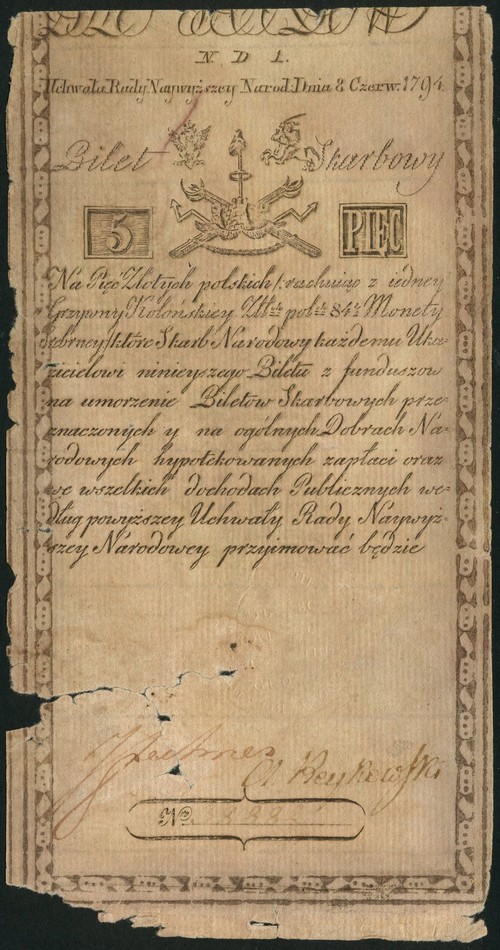 N D 1.
Uchwała Rady Naywyższey Narod: Dnia 8 Czerw: 1794.
Bilet Skarbowy
5 PIĘC
Na Pięć Złotych polskich /:rachuiąc z iedney
Grzywny Kolońskiey Złłtt polłł 84½ Monety
srebrney:/ które Skarb Narodowy każdemu Uka-
zicielowi ninieyszego Biletu z funduszow
na umorzenie Biletow Skarbowych prze-
znaczonych y na ogólnych Dobrach Na-
rodowych hypotékowanych zapłaci oraz
we wszelkich dochodach Publicznych we-
dług powyższey Uchwały Rady Naywyż-
szey Narodowey przyimować będzie
A Reykowski
No